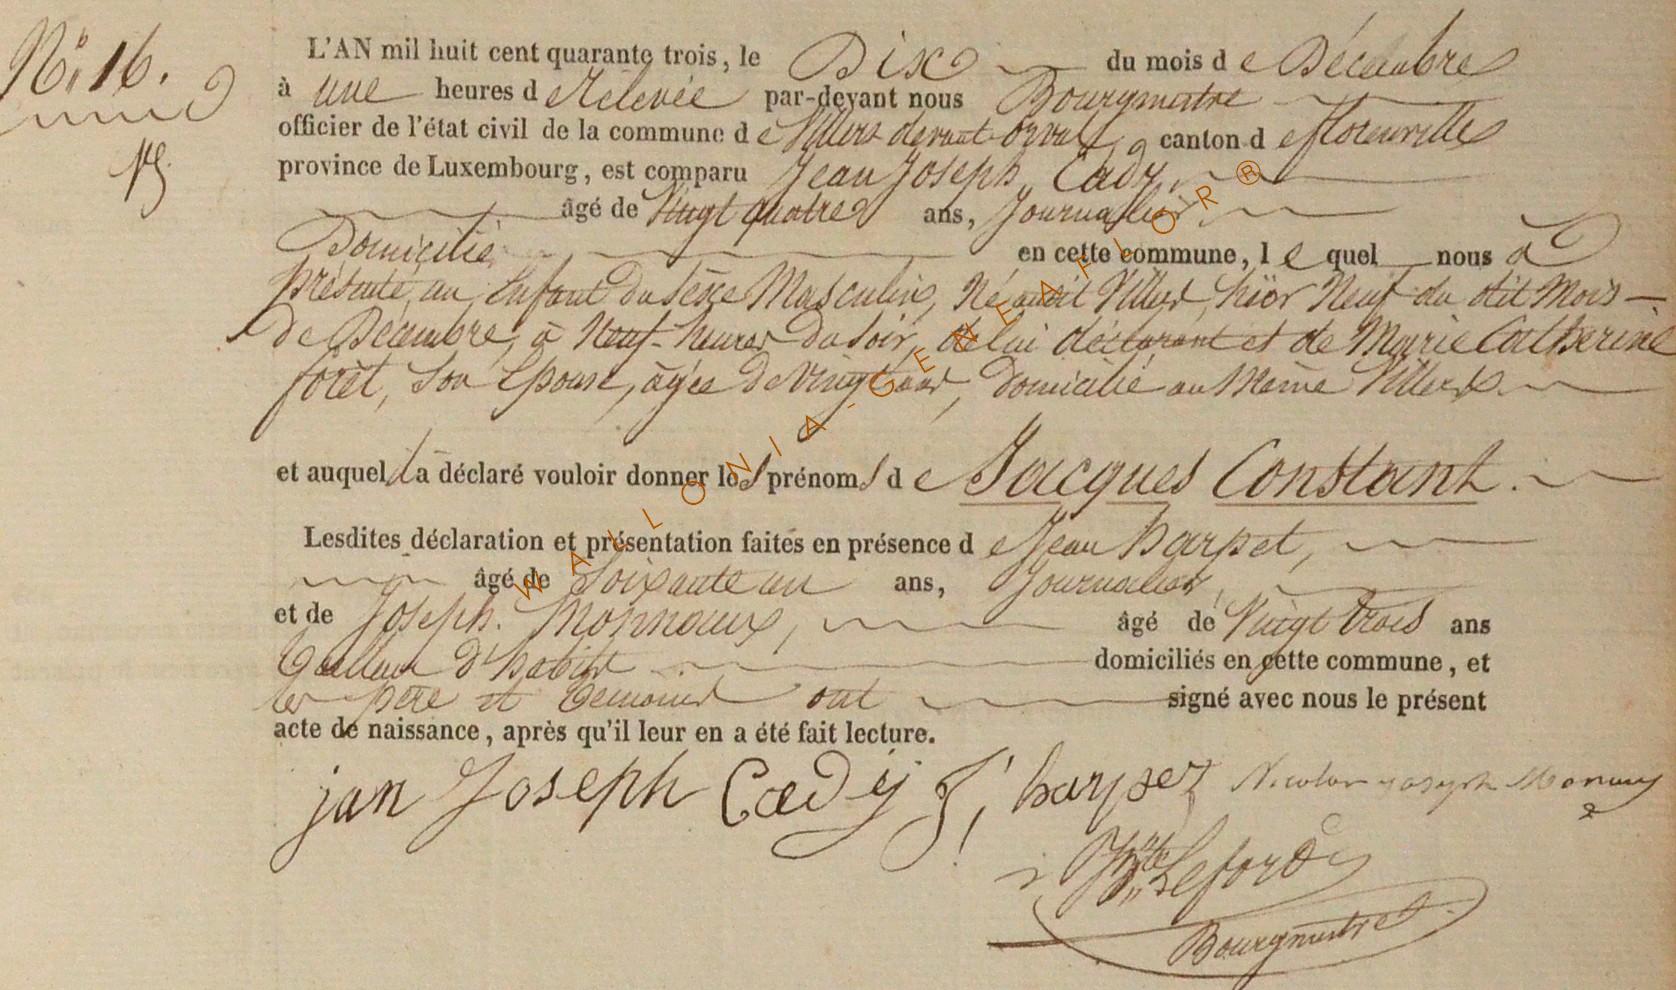 N° 16.
L'AN mil huit cent quarante trois, le Dix du mois de Décembre
à une heures de Relevée par-devant nous Bourgmestre
officier de l'état civil de la commune de Villers devant orval, canton de florenville
province de Luxembourg, est comparu Jean Joseph Cady,
âgé de Vingt quatre ans, Journalier
Domicilié en cette commune, lequel nous a
présenté, un Enfant du Sèxe Masculin, Né audit Villers, hier Neuf du dit Mois
de Décembre, à Neuf heures du soir, de lui déclarant et de Marie Catherine
forêt, son Epouse, âgée de vingt ans, Domicilié au Même Villers
et auquel il a déclaré vouloir donner les prénoms de Jacques Constant.
Lesdites déclaration et présentation faites en présence de Jean harpet,
âgé de Soixante un ans, Journalier,
et de Joseph Monnaux, âgé de Vingt trois ans
Tailleur d'habits domiciliés en cette commune, et
les père et témoins ont signé avec nous le présent
acte de naissance, après qu'il leur en a été fait lecture.
jan Joseph Cady J. harpet Nicolas joseph
Bourgmestre
WALLONIA-GENEAFLOR®